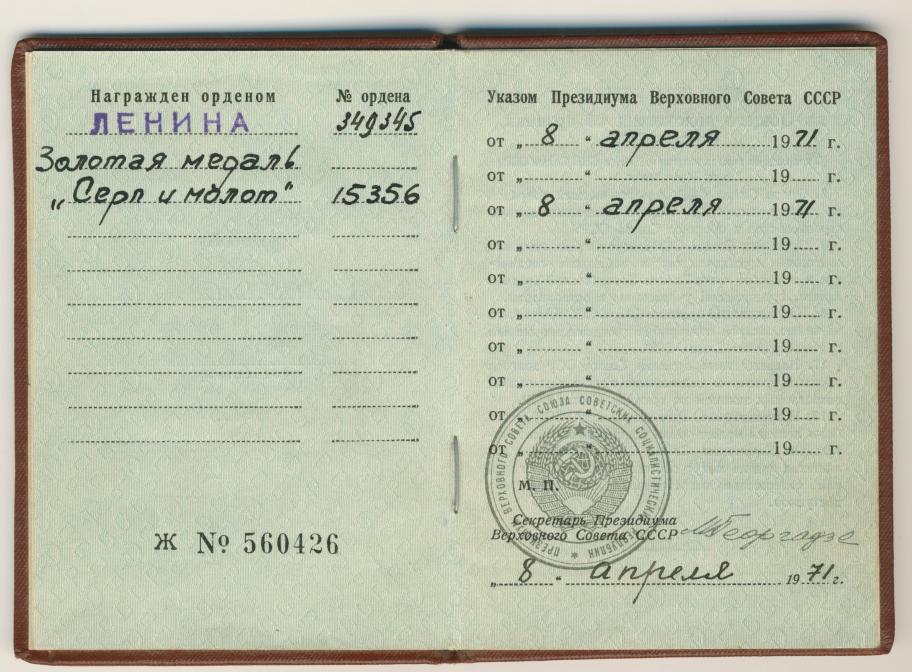 Награжден орденом
№ ордена
ЛЕНИНА
349345
Золотая медаль
„Серп и молот"
15356
Ж № 560426
Указом Президиума Верховного Совета СССР
от „ 8 “ апреля 1971 г.
от „ “ 19 г.
от „ 8 “ апреля 1971 г.
от „ “ 19 г.
от „ “ 19 г.
от „ “ 19 г.
от „ “ 19 г.
от „ “ 19 г.
от „ “ 19 г.
от „ “ 19 г.
ПРЕЗИДИУМ ВЕРХОВНОГО СОВЕТА СОЮЗА СОВЕТСКИХ СОЦИАЛИСТИЧЕСКИХ РЕСПУБЛИК
М. П.
Секретарь Президиума
Верховного Совета СССР МГеоргадзе
„ 8 “ апреля 1971 г.